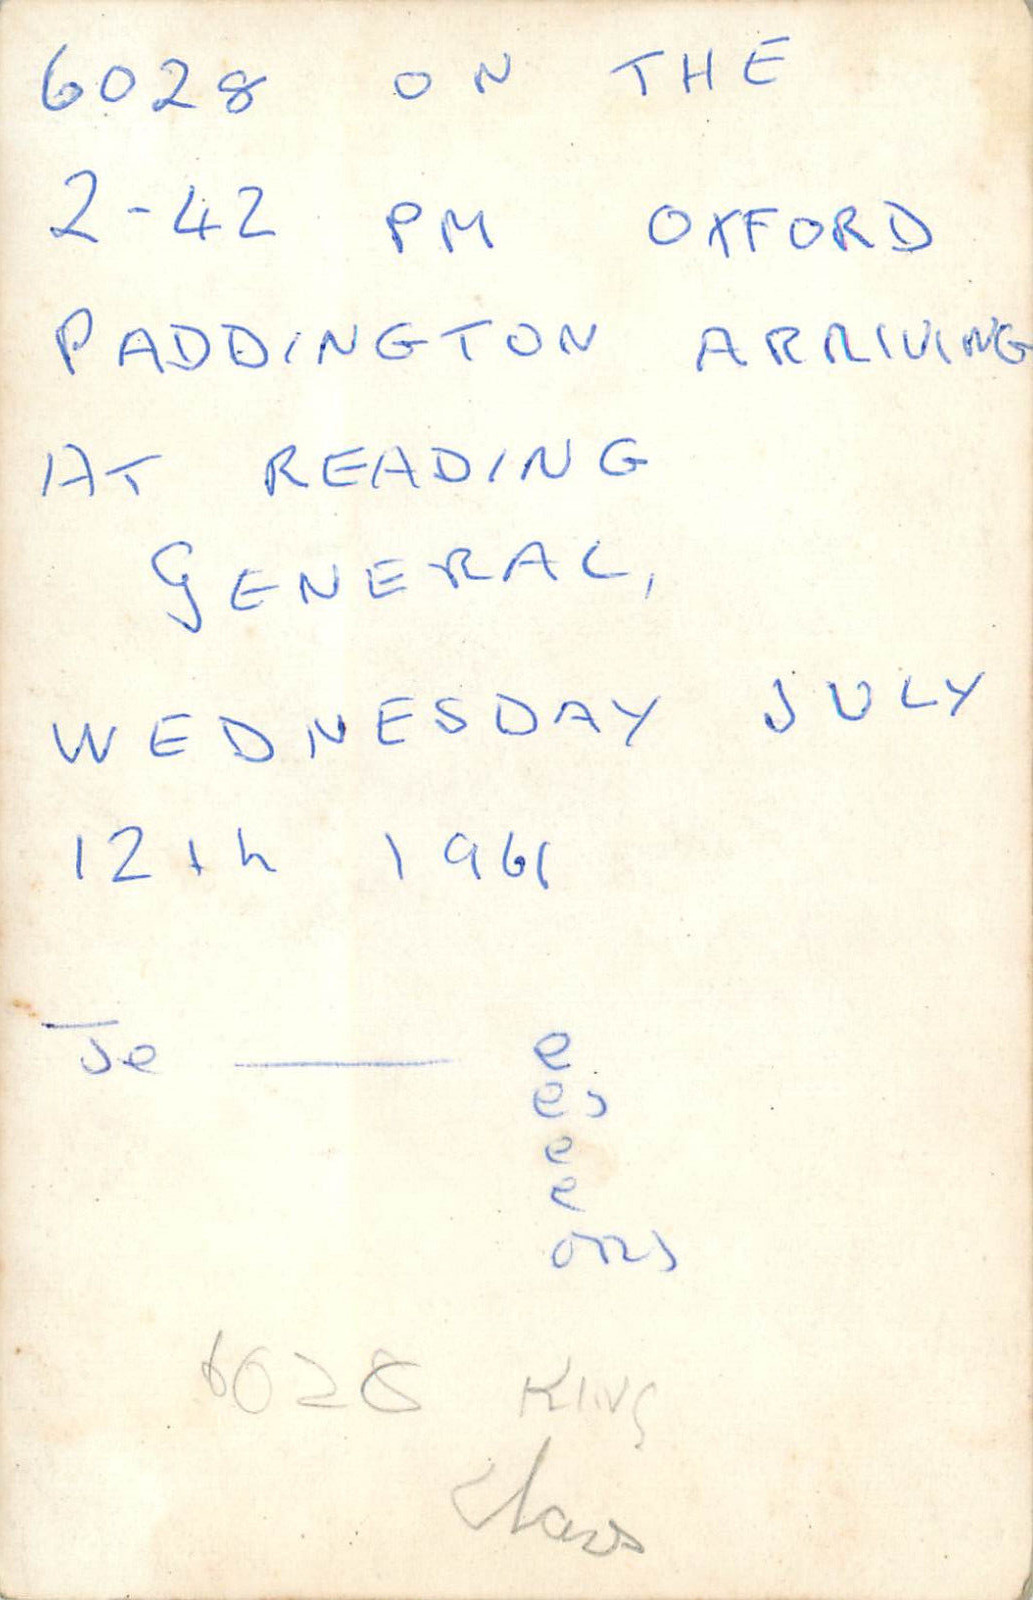 6028 ON THE
2-42 PM OXFORD
PADDINGTON ARRIVING
AT READING
GENERAL,
WEDNESDAY JULY
12th 1961
Je — e
es
e
e
ons
6028 KING
Class